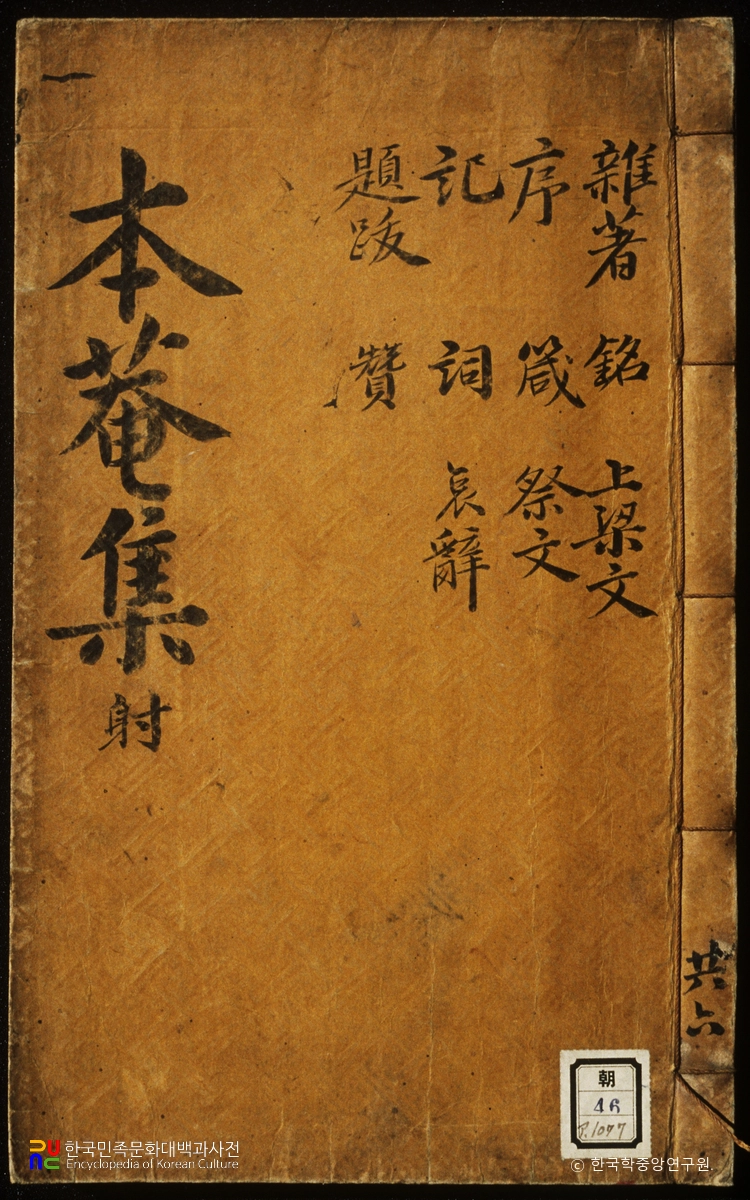 雜著 銘 上梁文
序 箴 祭文
記 詞 哀辭
題跋 贊
一
本菴集 射
共六
朝
46
P.1077
한국민족문화대백과사전
Encyclopedia of Korean Culture
© 한국학중앙연구원